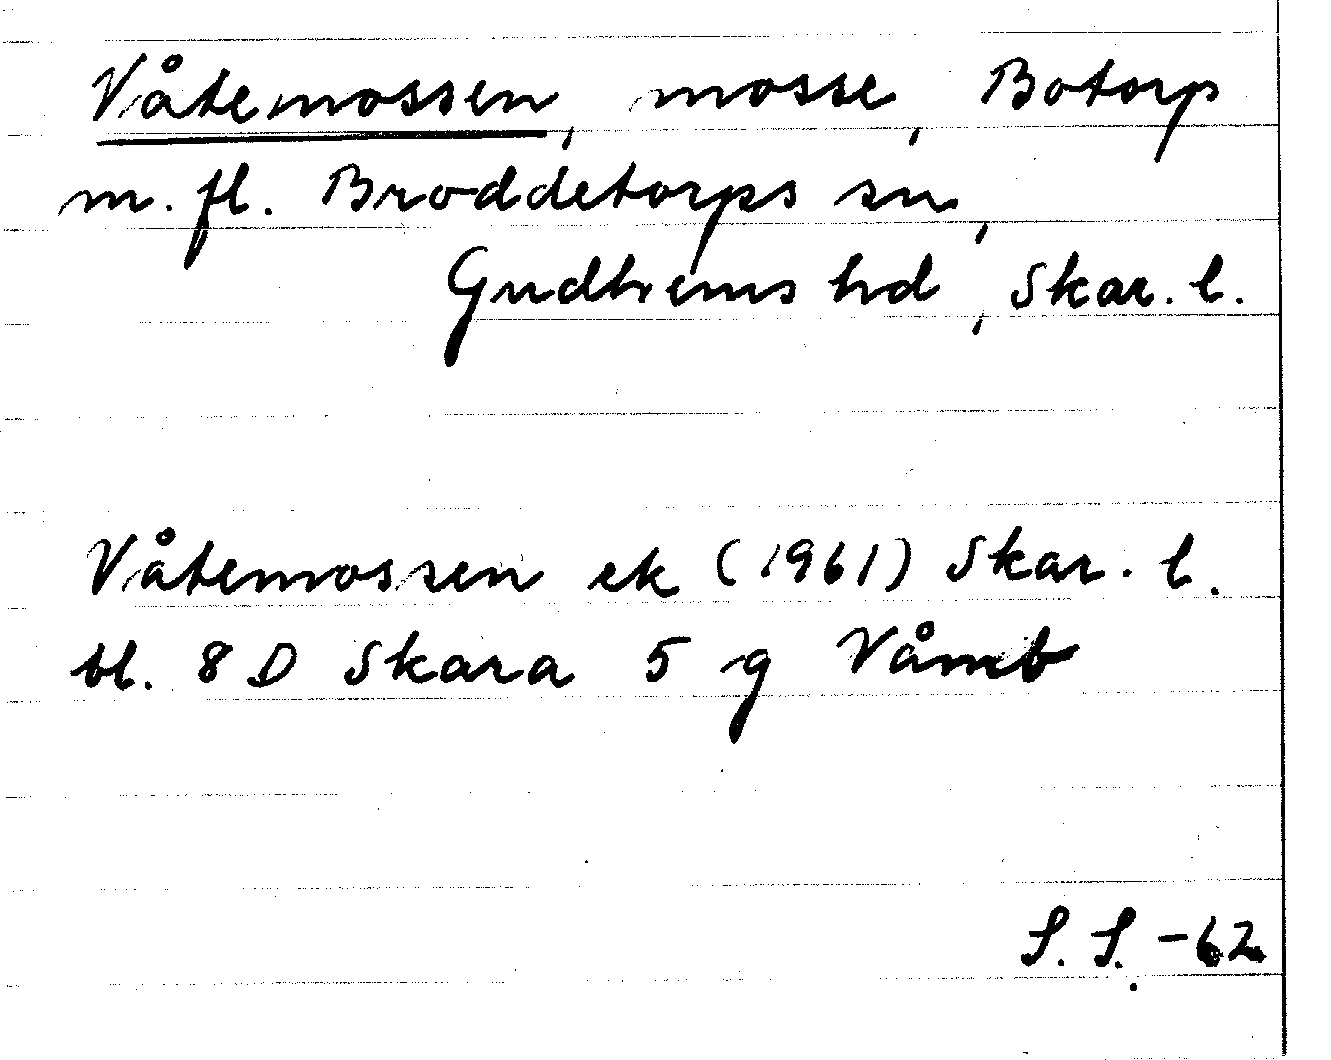 Våtemossen, mosse, Botorp
m. fl. Broddetorps sn,
Gudhems hd, Skar. l.
Våtemossen ek (1961) Skar. l.
bl. 8 D Skara 5 g Våmb
S. S. -62